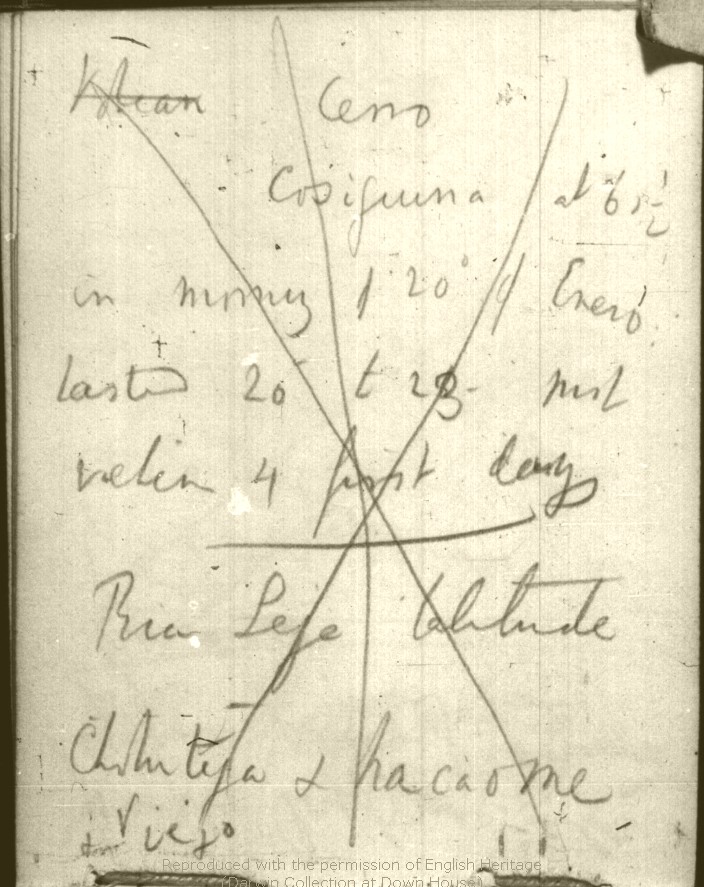 Volcan Cerro
Cosiguina at 6 1/2
in morng of 20° of Enero
lasted 20 t 23 most
4 first days
Ria Lejo latitude
Choluteja & Nacaome
Viejo
Reproduced with the permission of English Heritage
(Darwin Collection at Down House)